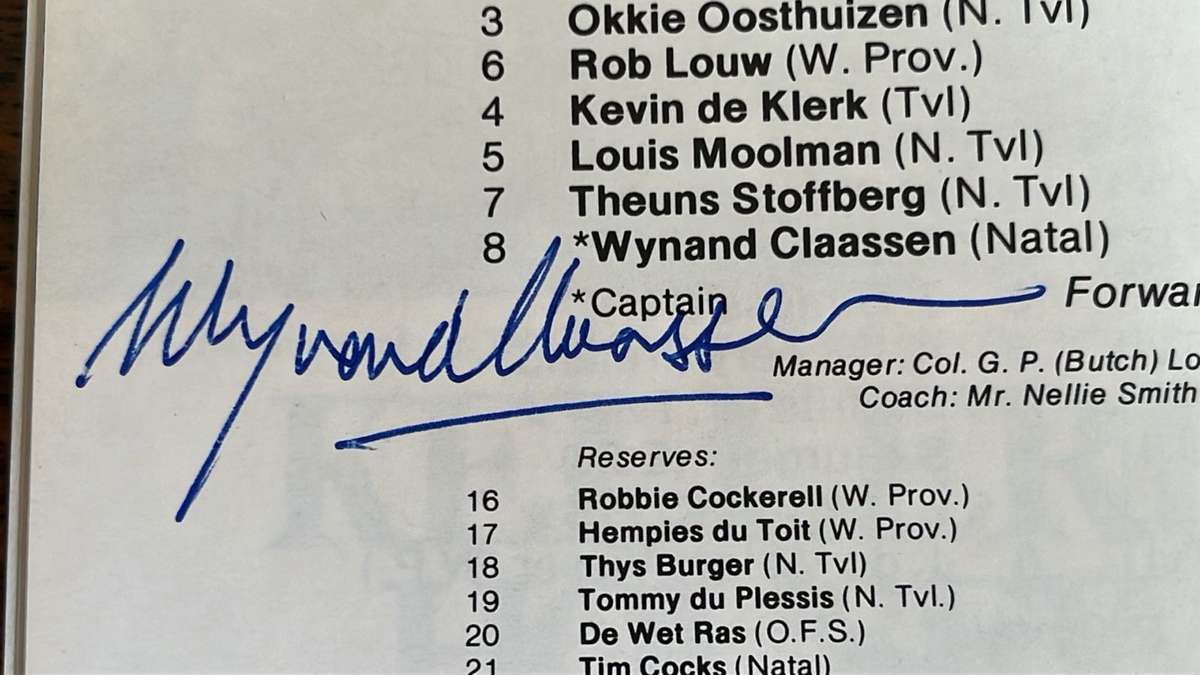 3 Okkie Oosthuizen (N. Tvl)
6 Rob Louw (W. Prov.)
4 Kevin de Klerk (Tvl)
5 Louis Moolman (N. Tvl)
7 Theuns Stoffberg (N. Tvl)
8 *Wynand Claassen (Natal)
*Captain
Wynand Claassen
Manager: Col. G. P. (Butch)
Coach: Mr. Nellie Smith
Reserves:
16 Robbie Cockerell (W. Prov.)
17 Hempies du Toit (W. Prov.)
18 Thys Burger (N. Tvl)
19 Tommy du Plessis (N. Tvl.)
20 De Wet Ras (O.F.S.)
21 Tim Cocks (Natal)